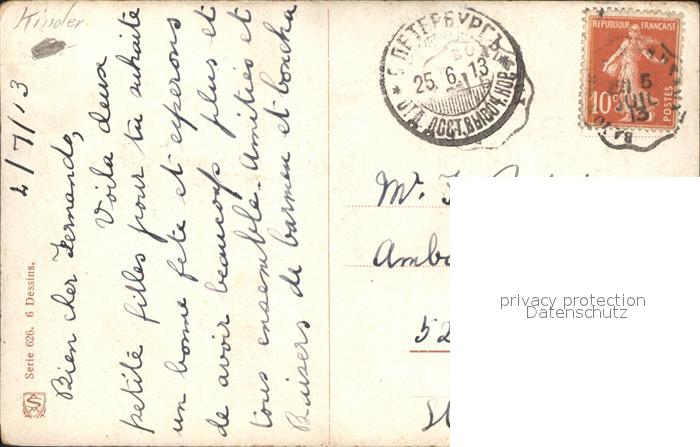 Kinder
4/7/13
Bien cher Fernando,
Voila deux
petite filles pour tu suhaité
un bonne fete et esperons
de avoir beaucoup plus et
tous ensemble. Amities et
Baisers de Carmen et boucha
Serie 626. 6 Dessins.
С.ПЕТЕРБУРГЪ
25.6.13
ОТД. ПОСТ. ВЫСОЧ. КОР.
REPUBLIQUE FRANÇAISE
10c
POSTES
5
JUIL
13
Mr.
Amba
52
privacy protection
Datenschutz